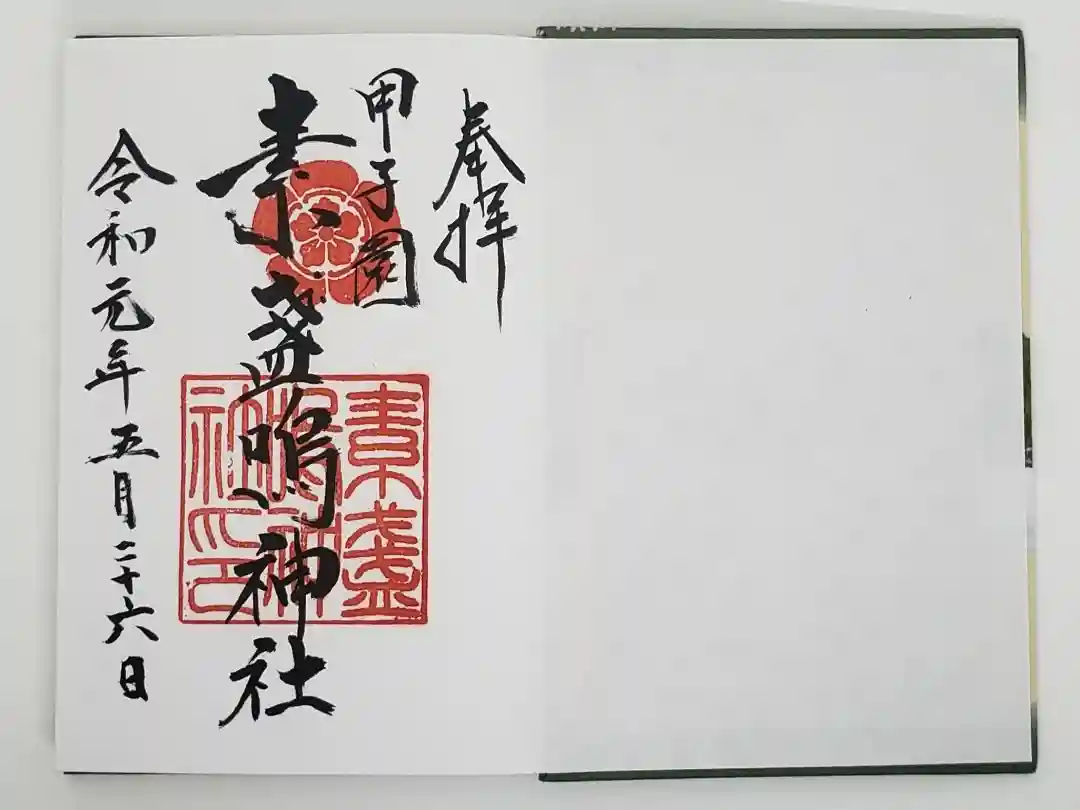 奉拝
甲子園
素盞嗚神社
素盞
嗚神
社印
令和元年五月二十六日